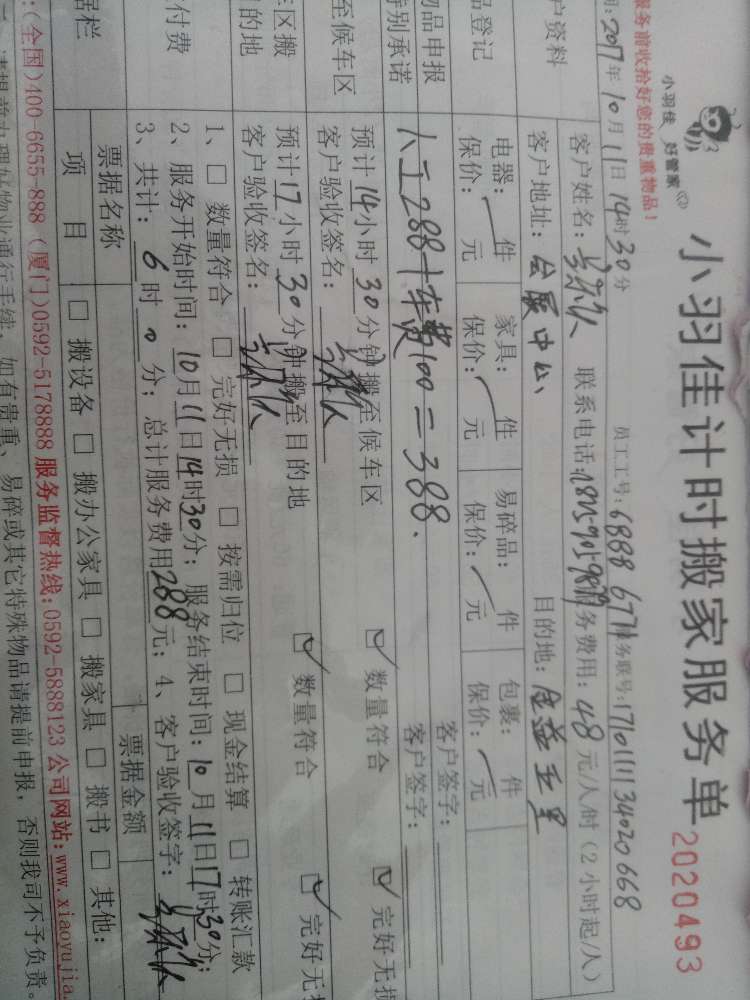 小羽佳 好管家
小羽佳计时搬家服务单 2020493
服务前收拾好您的贵重物品！
2017年10月11日14时30分 员工工号：6888 6771 服务联号：17101113402068
户资料
客户姓名： 联系电话： 服务费用：48元/人/时（2小时起/人）
客户地址：会展中心 目的地：
品登记
电器： 件 家具： 件 易碎品： 件 包裹： 件
保价： 元 保价： 元 保价： 元 保价： 元
物品申报 客户签字：
特别承诺 人工288+车费100=388. 客户签字：
至候车区 预计14小时30分钟搬至候车区 数量符合 完好无损
客户验收签名：
车区搬 预计17小时30分钟搬至目的地 数量符合 完好无损
的地 客户验收签名：
付费
1、□ 数量符合 □ 完好无损 □ 按需归位 □ 现金结算 □ 转账汇款
2、服务开始时间：10月11日14时30分；服务结束时间：10月11日17时30分；
3、共计：6时0分；总计服务费用288元；4、客户验收签字：
据栏 票据名称 票据金额
项 目 □ 搬设备 □ 搬办公家具 □ 搬家具 □ 搬书 □ 其他：
：(全国)400-6655-888 (厦门)0592-5178888 服务监督热线:0592-5888123 公司网站:www.xiaoyujia.
提前办理好物业通行手续，如有贵重、易碎或其它特殊物品请提前申报，否则我司不予负责。